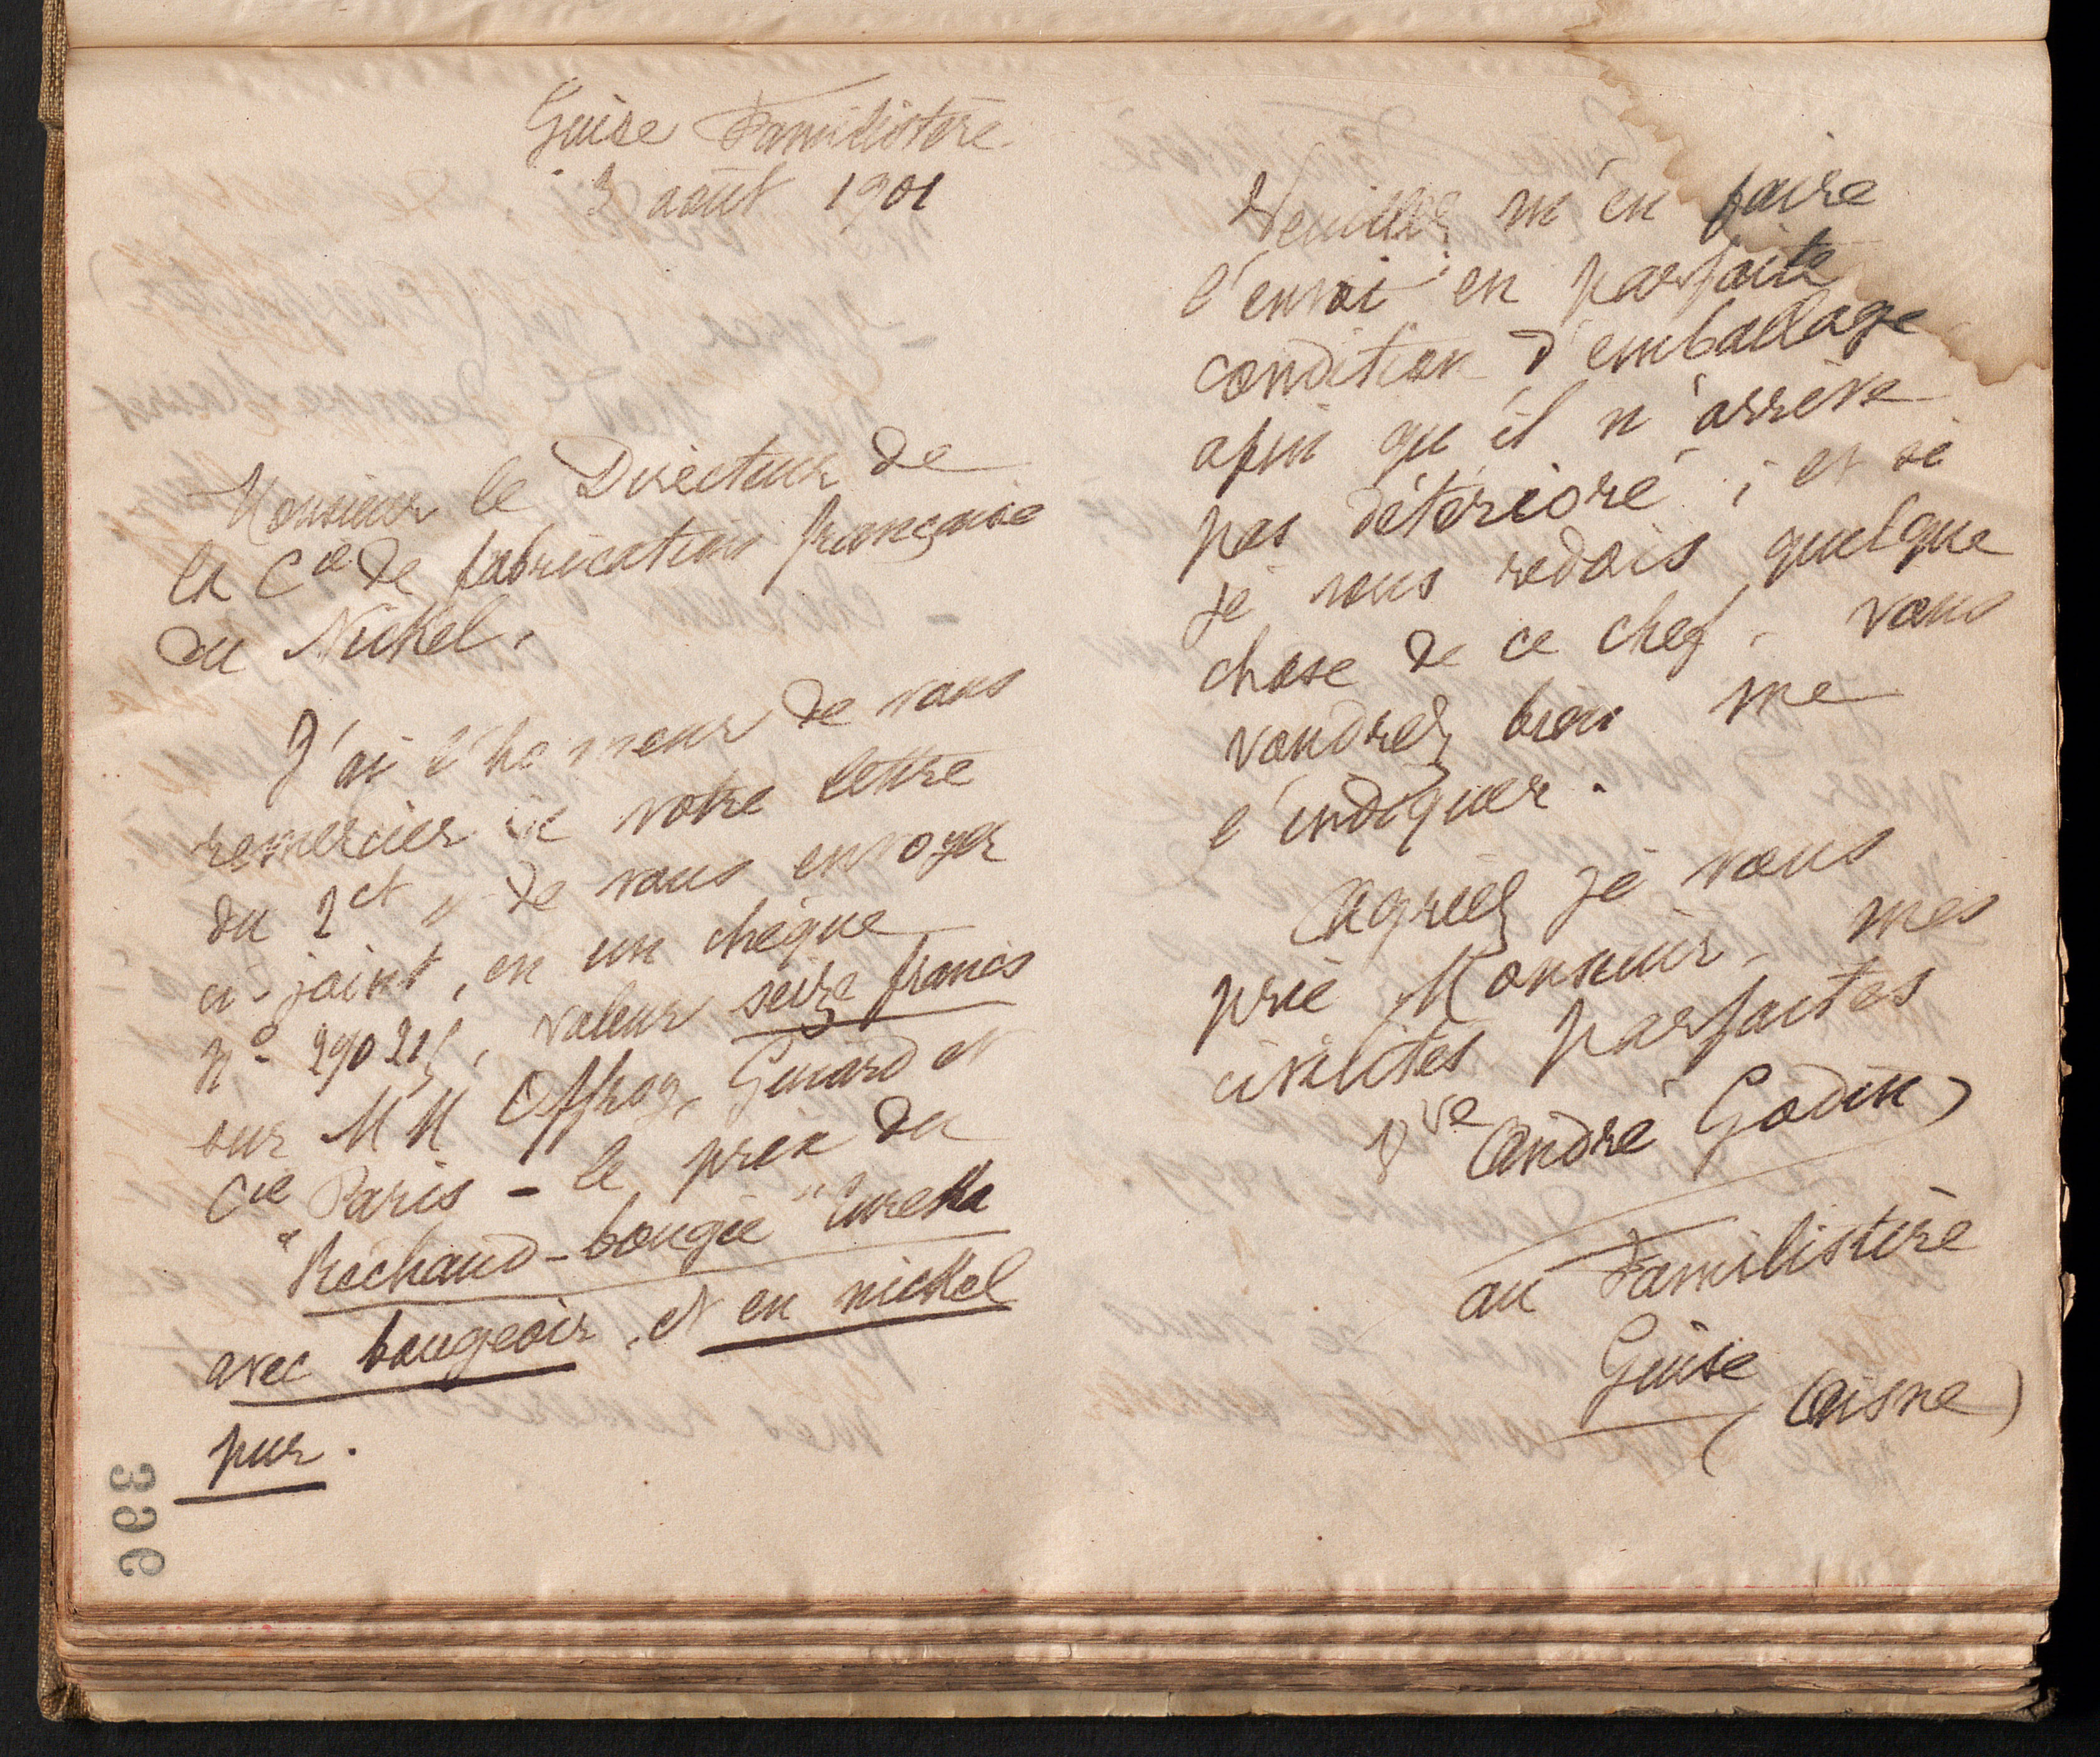 Guise Familistère
3 août 1901
Monsieur le Directeur de
la Cie de fabrication française
du Nickel,
J'ai l'honneur de vous
remercier de votre lettre
du 2 ct et de vous envoyer
ci-joint, en un chèque
n° 29021, valeur seize francs
sur MM Offroy, Guiard et
Cie Paris - le prix du
"Réchaud-bougie" Eureka
avec bougeoir, et en nickel
pur.
396
Veuillez m'en faire
l'envoi en parfaite
condition d'emballage
afin qu'il n'arrive
pas détérioré ; et si
je vous redois quelque
chose de ce chef, vous
voudrez bien me
l'indiquer.
Agréez je vous
prie Monsieur, mes
civilités parfaites
Vve André Godin
au Familistère
Guise
(Aisne)